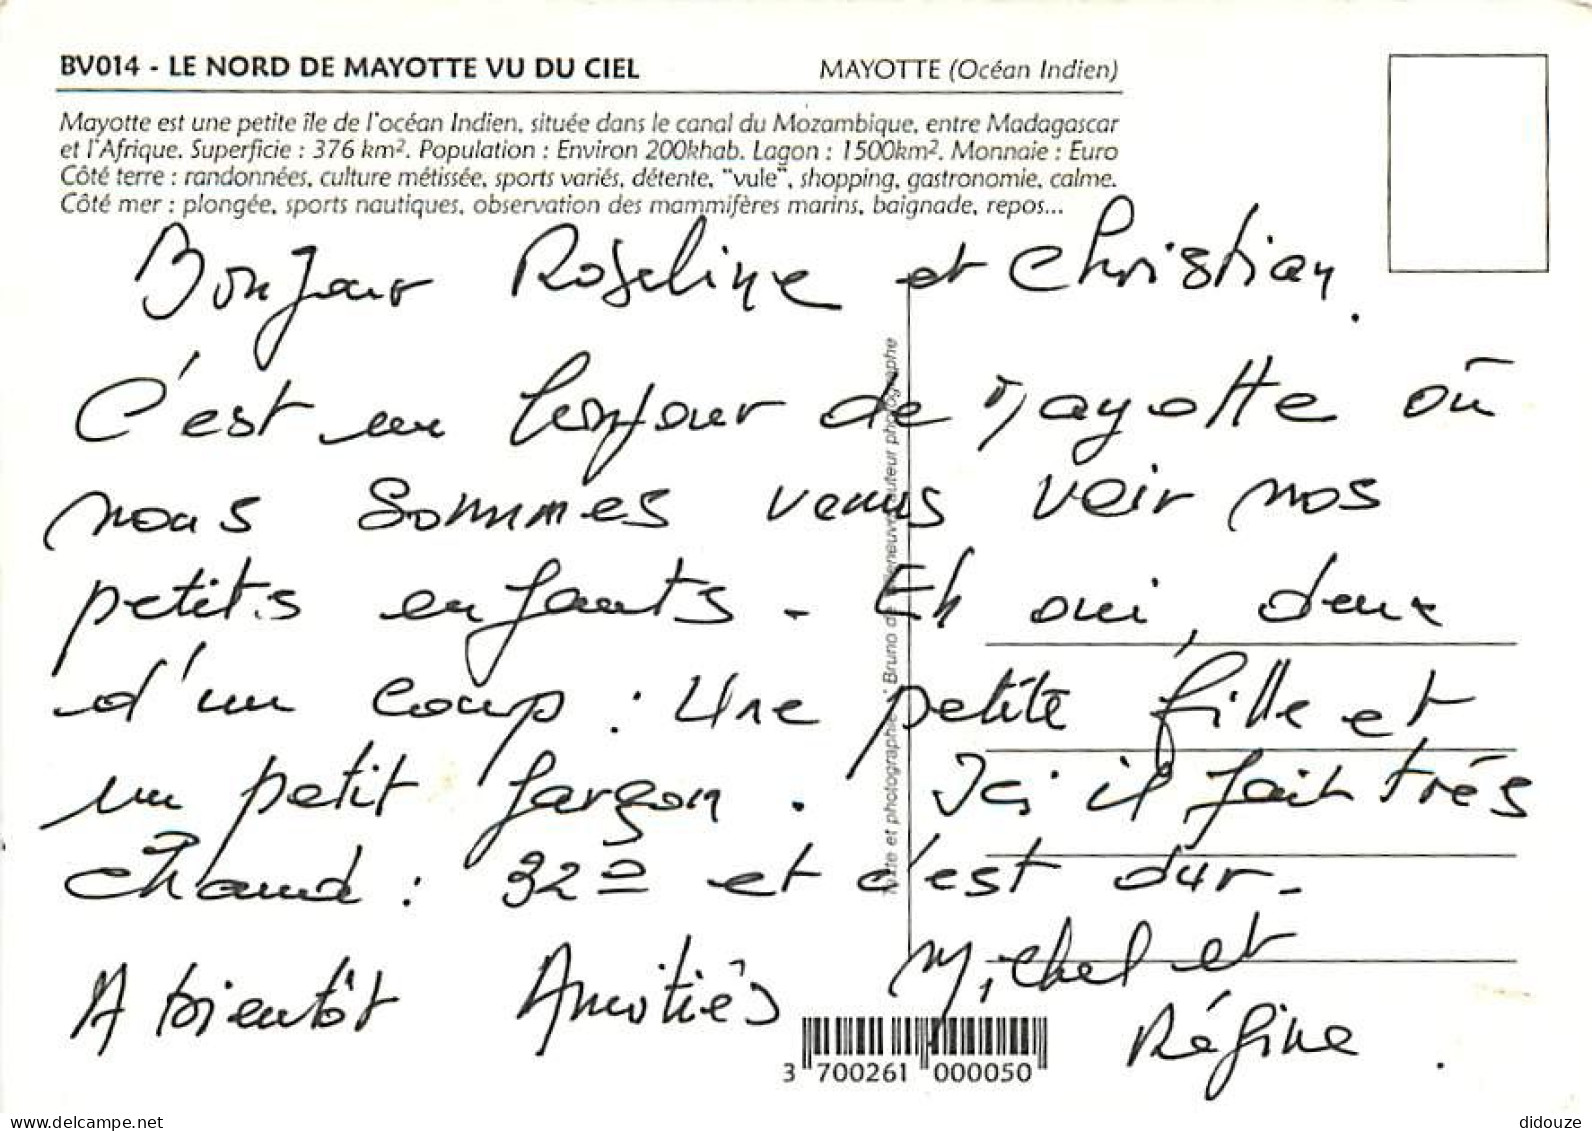 BV014 - LE NORD DE MAYOTTE VU DU CIEL
MAYOTTE (Océan Indien)
Mayotte est une petite île de l'océan Indien, située dans le canal du Mozambique, entre Madagascar
et l'Afrique. Superficie : 376 km². Population : Environ 200khab. Lagon : 1500km². Monnaie : Euro
Côté terre : randonnées, culture métissée, sports variés, détente, "vule", shopping, gastronomie, calme.
Côté mer : plongée, sports nautiques, observation des mammifères marins, baignade, repos...
Bonjour Roseline et Christian.
C'est un bonjour de Mayotte où
nous sommes venus voir nos
petits enfants - Eh oui, deux
d'un coup : Une petite fille et
un petit garçon. Ici il fait très
chaud : 32° et c'est dur -
A bientôt Amitiés Michel et
Régine.
Texte et photographie : Bruno de auteur photographe
3 700261 000050
www.delcampe.net
didouze